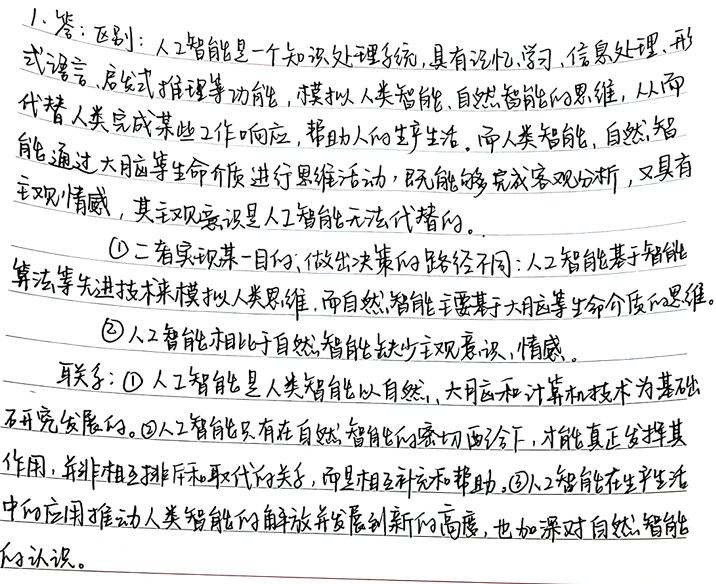 1. 答：区别：人工智能是一个知识处理系统，具有记忆、学习、信息处理、形
式语言、启发式推理等功能，模拟人类智能、自然智能的思维，从而
代替人类完成某些工作响应，帮助人的生产生活。而人类智能、自然智
能通过大脑等生命介质进行思维活动，既能够完成客观分析，又具有
主观情感，其主观意识是人工智能无法代替的。
①二者实现某一目的、做出决策的路径不同：人工智能基于智能
算法等先进技术来模拟人类思维，而自然智能主要基于大脑等生命介质的思维。
②人工智能相比于自然智能缺少主观意识、情感。
联系：①人工智能是人类智能以自然、大脑和计算机技术为基础
研究发展的。②人工智能只有在自然智能的密切配合下，才能真正发挥其
作用，并非相互排斥和取代的关系，而是相互补充和帮助。③人工智能在生产生活
中的应用推动人类智能的解放并发展到新的高度，也加深对自然智能
的认识。